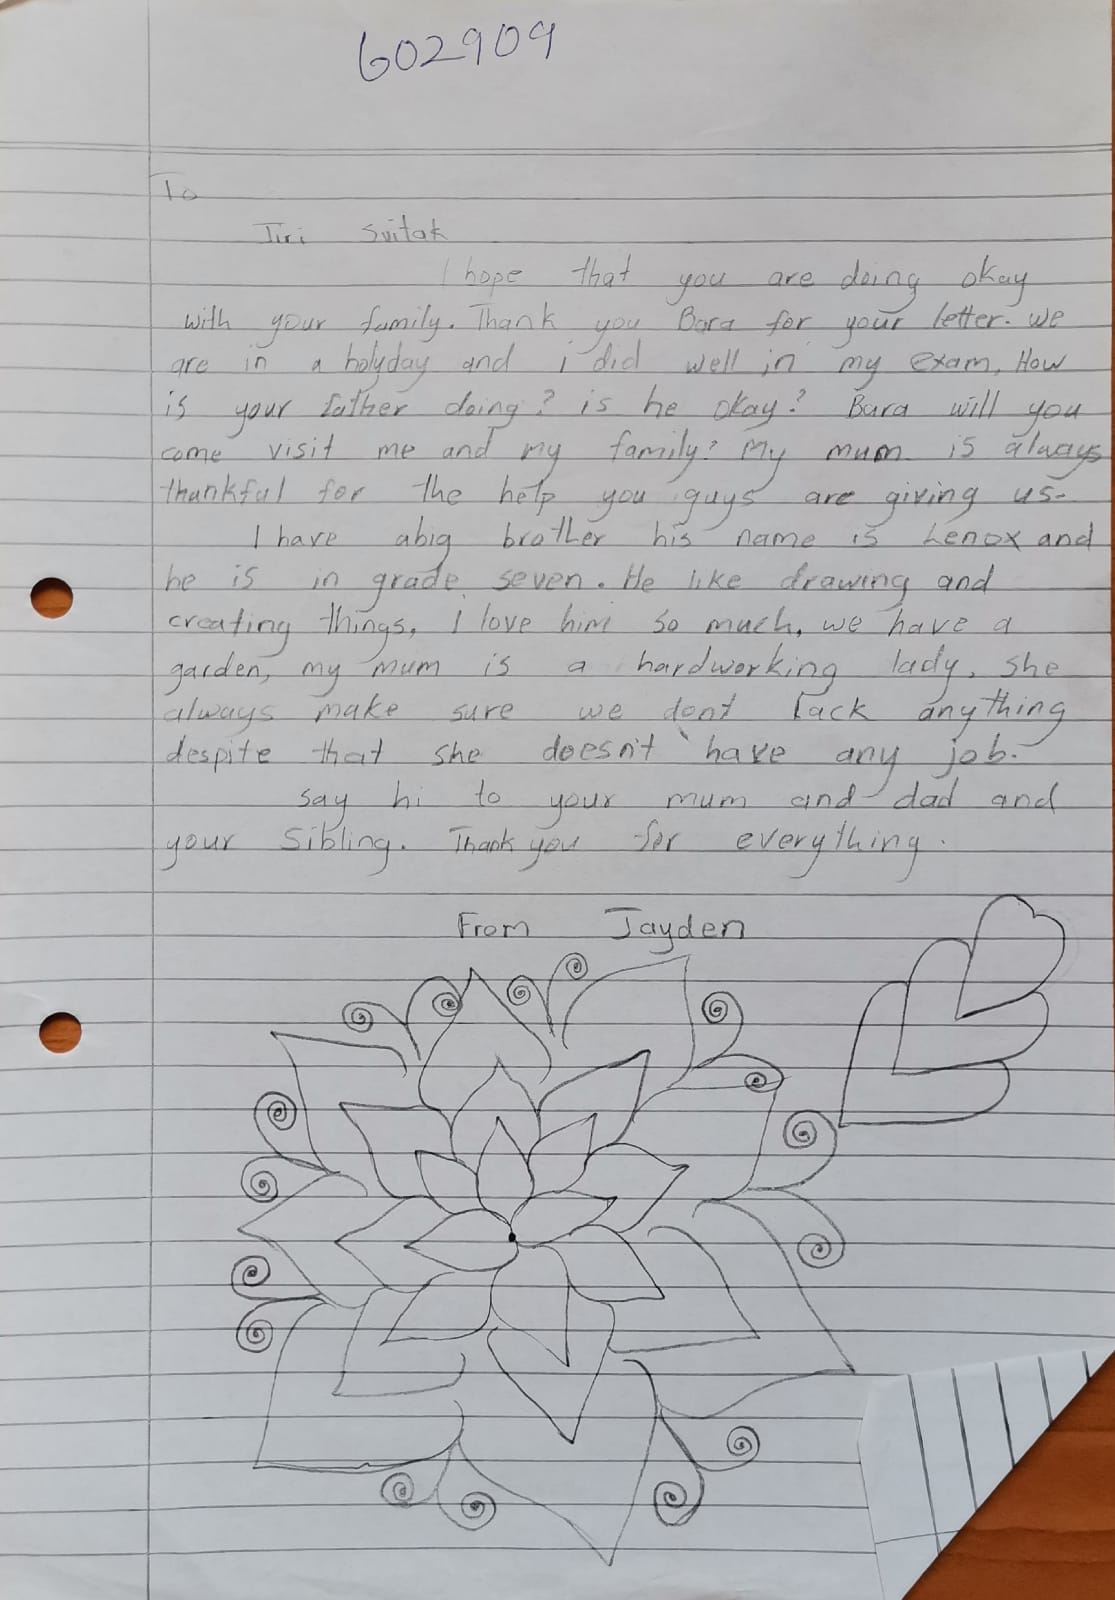 602909
To
Jiri Svitak
I hope that you are doing okay
with your family. Thank you Bara for your letter. we
are in a holyday and i did well in my exam, How
is your father doing? is he okay? Bara will you
come visit me and my family? My mum is always
thankful for the help you guys are giving us.
I have abig brother his name is Lenox and
he is in grade seven. He like drawing and
creating things, I love him so much, we have a
garden, my mum is a hardworking lady, she
always make sure we dont lack anything
despite that she doesn't have any job.
say hi to your mum and dad and
your sibling. Thank you for everything.
From Jayden